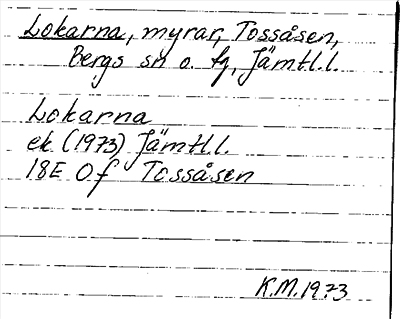 Lokarna, myrar, Tossåsen,
Bergs sn o. tg, Jämtl.l.
Lokarna
ek (1973) Jämtl.l.
18E Of Tossåsen
K.M. 1973